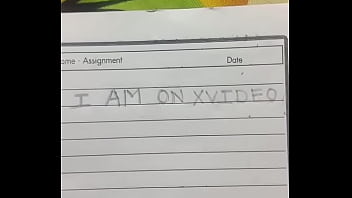 ome - Assignment Date
I AM ON XVIDEO